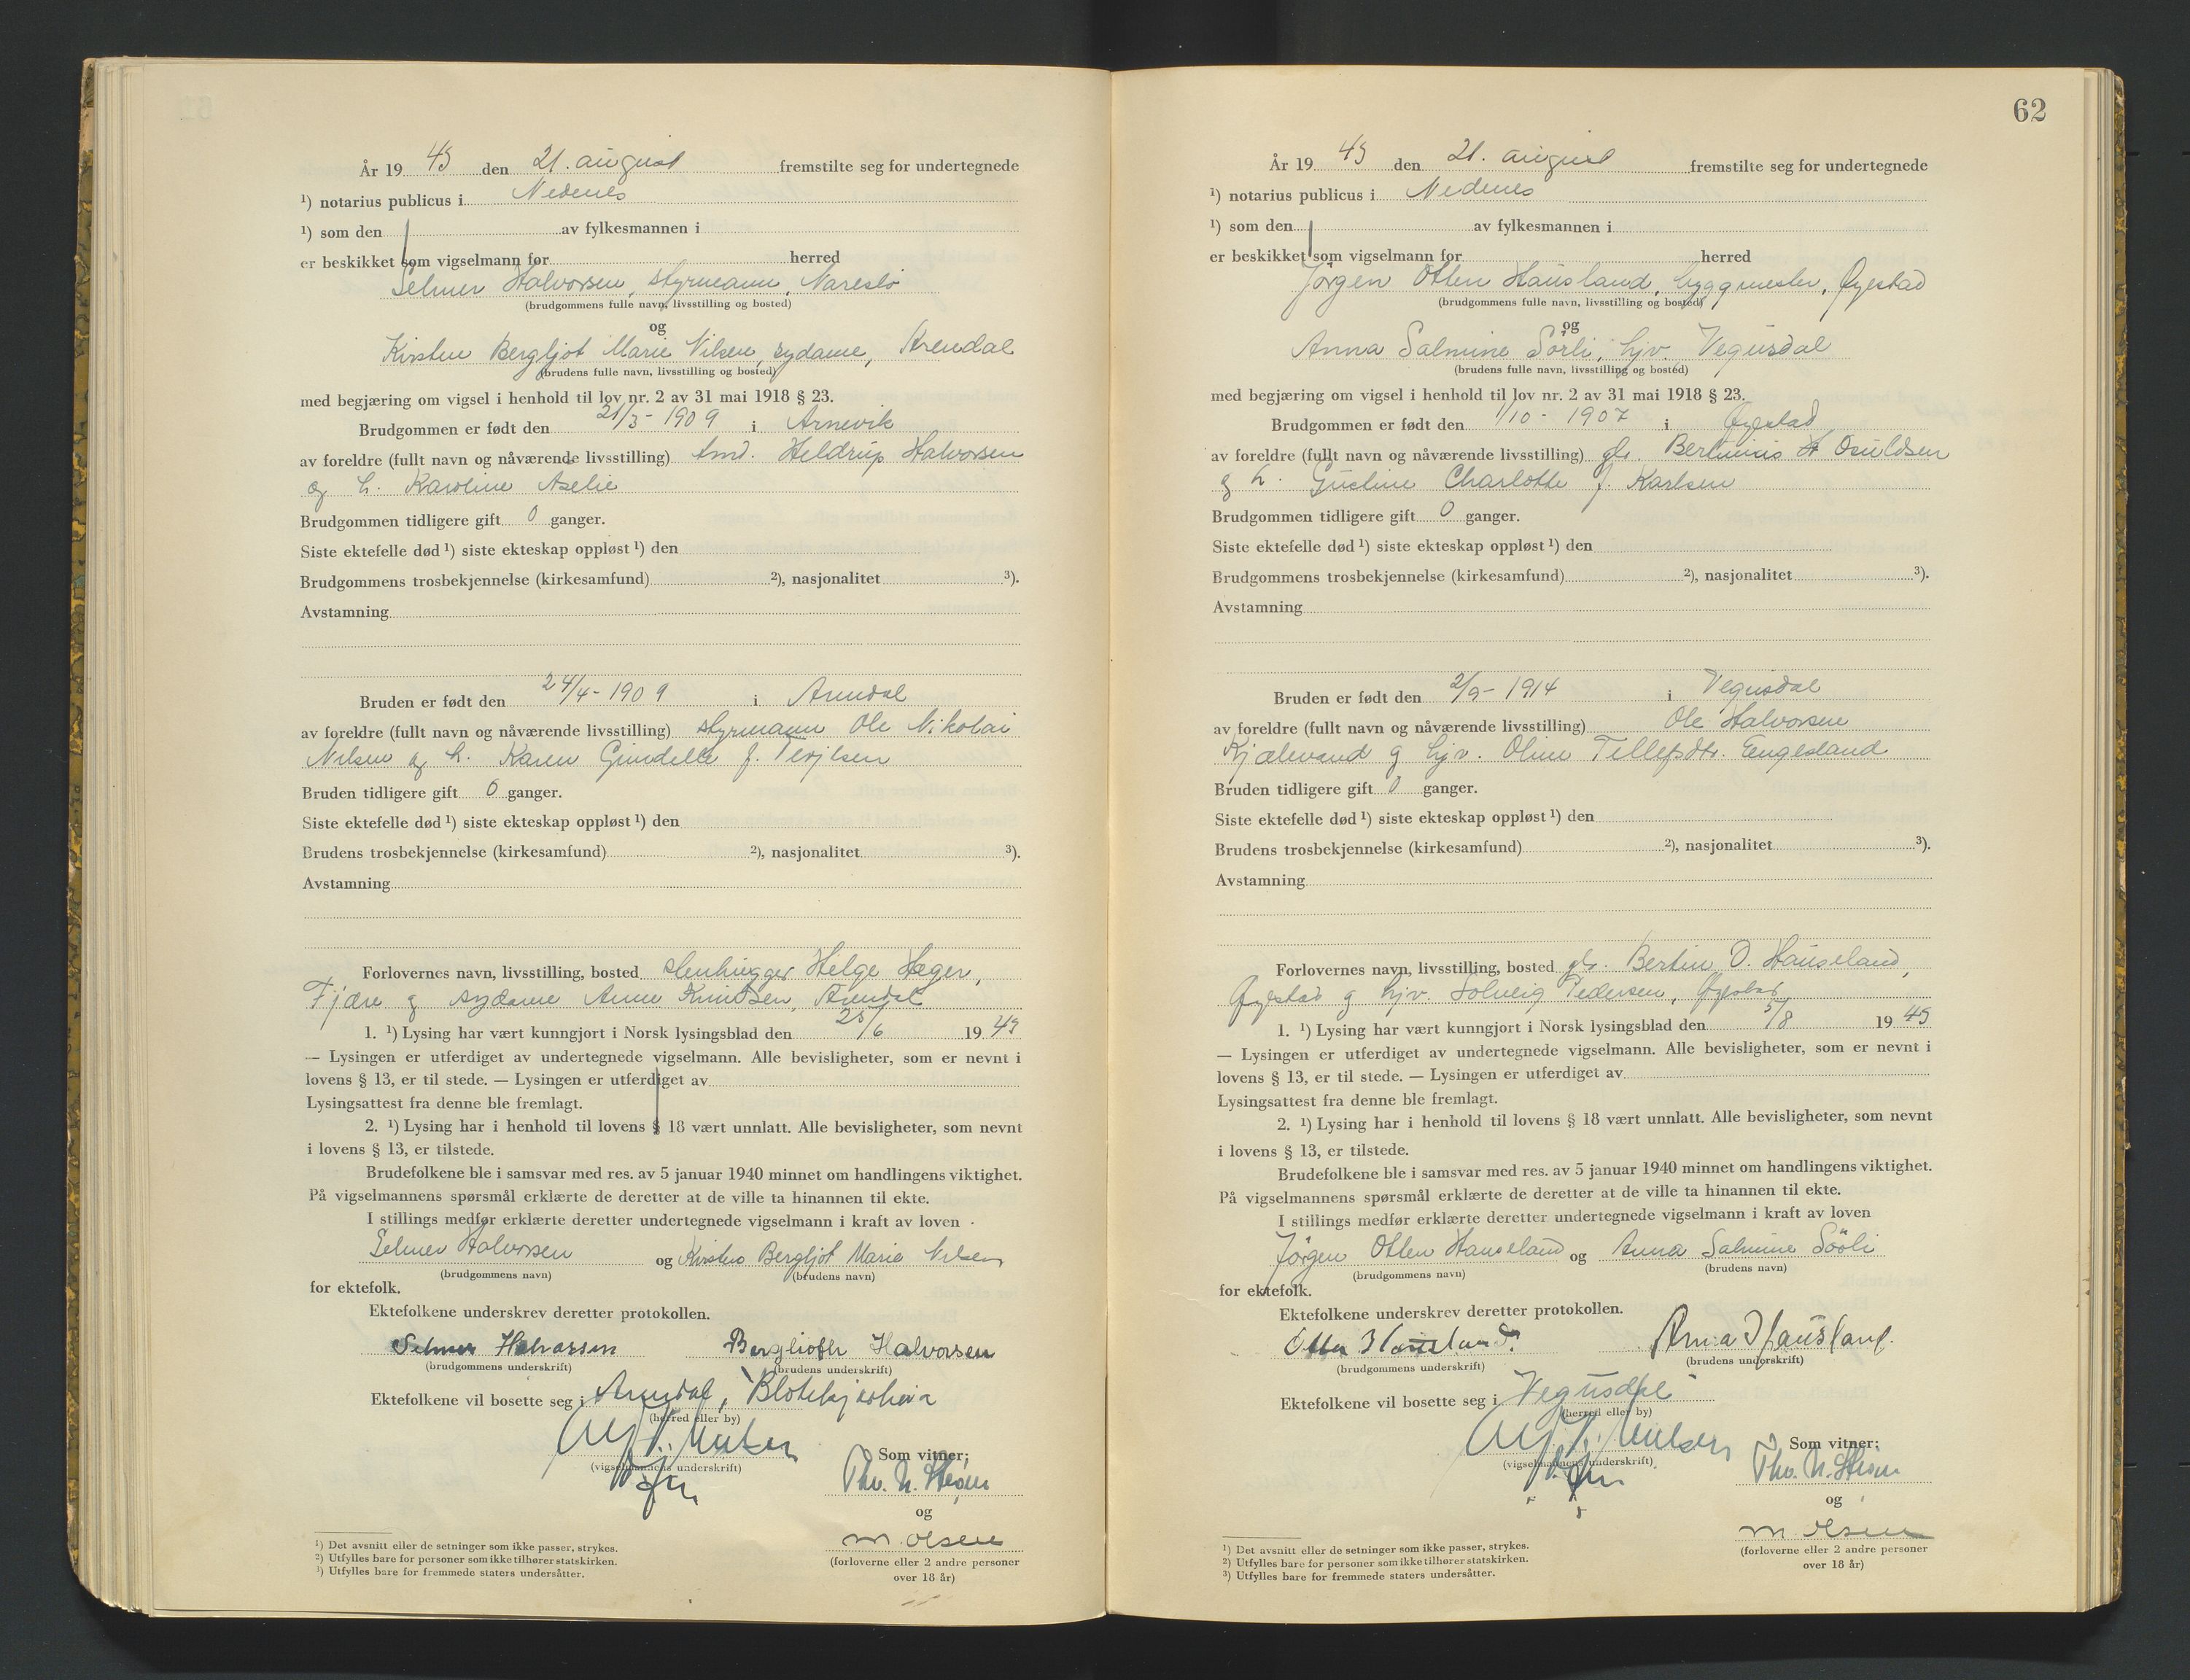 År 19 43 den 21. august fremstilte seg for undertegnede
¹) notarius publicus i Nedenes
¹) som den av fylkesmannen i
er beskikket som vigselmann for herred
Selmer Halvorsen, styrmann, Narestø
(brudgommens fulle navn, livsstilling og bosted)
og
Kirsten Bergljot Marie Nilsen, sydame, Arendal
(brudens fulle navn, livsstilling og bosted)
med begjæring om vigsel i henhold til lov nr. 2 av 31 mai 1918 § 23.
Brudgommen er født den 21/3 - 1909 i Arnevik
av foreldre (fullt navn og nåværende livsstilling) Heldrup Halvorsen
og h. Karoline Aselie
Brudgommen tidligere gift 0 ganger.
Siste ektefelle død ¹) siste ekteskap oppløst ¹) den
Brudgommens trosbekjennelse (kirkesamfund) ²), nasjonalitet ³).
Avstamning
Bruden er født den 24/4 - 1909 i Arendal
av foreldre (fullt navn og nåværende livsstilling) styrmann Ole Nikolai
Nilsen og h. Karen Gundelle f. Terjesen
Bruden tidligere gift 0 ganger.
Siste ektefelle død ¹) siste ekteskap oppløst ¹) den
Brudens trosbekjennelse (kirkesamfund) ²), nasjonalitet ³).
Avstamning
Forlovernes navn, livsstilling, bosted stenhugger Helge Heger,
Fjære og sydame Anne Knudsen, Arendal
1. ¹) Lysing har vært kunngjort i Norsk lysingsblad den 25/6 19 43
— Lysingen er utferdiget av undertegnede vigselmann. Alle bevisligheter, som er nevnt i
lovens § 13, er til stede. — Lysingen er utferdiget av
Lysingsattest fra denne ble fremlagt.
2. ¹) Lysing har i henhold til lovens § 18 vært unnlatt. Alle bevisligheter, som nevnt
i lovens § 13, er tilstede.
Brudefolkene ble i samsvar med res. av 5 januar 1940 minnet om handlingens viktighet.
På vigselmannens spørsmål erklærte de deretter at de ville ta hinannen til ekte.
I stillings medfør erklærte deretter undertegnede vigselmann i kraft av loven
Selmer Halvorsen og Kirsten Bergljot Marie Nilsen
(brudgommens navn) (brudens navn)
for ektefolk.
Ektefolkene underskrev deretter protokollen.
Selmer Halvorsen Berglioth Halvorsen
(brudgommens underskrift) (brudens underskrift)
Ektefolkene vil bosette seg i Arendal, Blødekjærheia
(herred eller by)
(vigselmannens underskrift) Som vitner:
Tho. N.
og
M. Olsen
(forloverne eller 2 andre personer
over 18 år)
¹) Det avsnitt eller de setninger som ikke passer, strykes.
²) Utfylles bare for personer som ikke tilhører statskirken.
³) Utfylles bare for fremmede staters undersåtter.
62
År 19 43 den 21. august fremstilte seg for undertegnede
¹) notarius publicus i Nedenes
¹) som den av fylkesmannen i
er beskikket som vigselmann for herred
Jørgen Otten Hausland, byggmester, Øyestad
(brudgommens fulle navn, livsstilling og bosted)
og
Anna Salmine Sørli, hjv. Vegusdal
(brudens fulle navn, livsstilling og bosted)
med begjæring om vigsel i henhold til lov nr. 2 av 31 mai 1918 § 23.
Brudgommen er født den 1/10 - 1907 i Øyestad
av foreldre (fullt navn og nåværende livsstilling) Osuldsen
og h. Gusline Charlotte f. Karlsen
Brudgommen tidligere gift 0 ganger.
Siste ektefelle død ¹) siste ekteskap oppløst ¹) den
Brudgommens trosbekjennelse (kirkesamfund) ²), nasjonalitet ³).
Avstamning
Bruden er født den 2/9 - 1914 i Vegusdal
av foreldre (fullt navn og nåværende livsstilling) Ole Halvorsen
Kjælevand og hjv. Oline Tellefsdtr. Engesland
Bruden tidligere gift 0 ganger.
Siste ektefelle død ¹) siste ekteskap oppløst ¹) den
Brudens trosbekjennelse (kirkesamfund) ²), nasjonalitet ³).
Avstamning
Forlovernes navn, livsstilling, bosted Bertin O. Hauseland,
Øyestad og hjv. Solveig Pedersen, Øyestad
1. ¹) Lysing har vært kunngjort i Norsk lysingsblad den 5/8 19 43
— Lysingen er utferdiget av undertegnede vigselmann. Alle bevisligheter, som er nevnt i
lovens § 13, er til stede. — Lysingen er utferdiget av
Lysingsattest fra denne ble fremlagt.
2. ¹) Lysing har i henhold til lovens § 18 vært unnlatt. Alle bevisligheter, som nevnt
i lovens § 13, er tilstede.
Brudefolkene ble i samsvar med res. av 5 januar 1940 minnet om handlingens viktighet.
På vigselmannens spørsmål erklærte de deretter at de ville ta hinannen til ekte.
I stillings medfør erklærte deretter undertegnede vigselmann i kraft av loven
Jørgen Otten Hauseland og Anna Salmine Sørli
(brudgommens navn) (brudens navn)
for ektefolk.
Ektefolkene underskrev deretter protokollen.
Otten Hausland. Anna Hausland.
(brudgommens underskrift) (brudens underskrift)
Ektefolkene vil bosette seg i Vegusdal
(herred eller by)
(vigselmannens underskrift) Som vitner:
Tho. N.
og
M. Olsen
(forloverne eller 2 andre personer
over 18 år)
¹) Det avsnitt eller de setninger som ikke passer, strykes.
²) Utfylles bare for personer som ikke tilhører statskirken.
³) Utfylles bare for fremmede staters undersåtter.